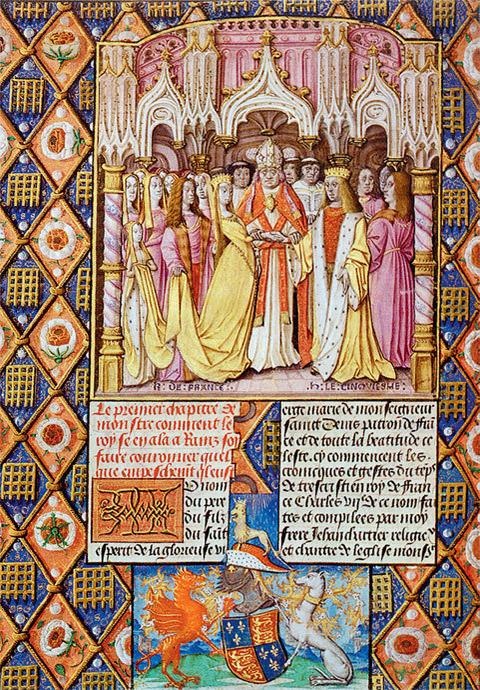 R: DE: FRANCE:
h: LE: CINQVIESME:
Le premier chapitre de
monstre comment le
roy se en ala a soy
faire couronner quel
que
Ou nom
du pere
du filz
du sait
esperit de la glorieuse vi
erge marie de monseigneur
sainct Denis patron de
ce et de toute la beatitude ce
leste. cy commencent les
cronicques et gestes du
de trescrestien roy de fran
ce Charles vij de ce nom fai
tes et compilees par moy
frere Jehan chartier
et chantre de leglise